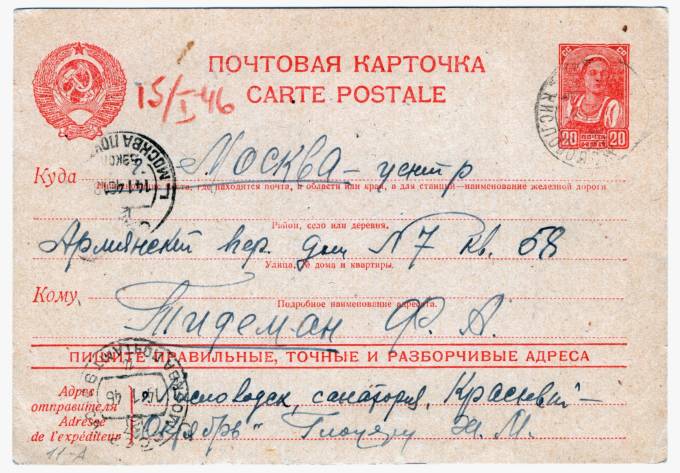 ПОЧТОВАЯ КАРТОЧКА
CARTE POSTALE
15/I 46
СС СР
20 ПОЧТА 20
КИСЛОВОДСК
МОСКВА
Куда Москва - центр
где находится почта, и области или края, а для станций—наименование железной дороги
Район, село или деревня.
Армянский пер. дом N 7 кв. 58
Улица, № дома и квартиры.
Кому
Подробное наименование адресата.
Тидеман Ф. А.
ПИШИТЕ ПРАВИЛЬНЫЕ, ТОЧНЫЕ И РАЗБОРЧИВЫЕ АДРЕСА
Адрес отправителя
Adresse de l'expéditeur
Кисловодск, санаторий „Красный
Октябрь" Н. М.
11-А